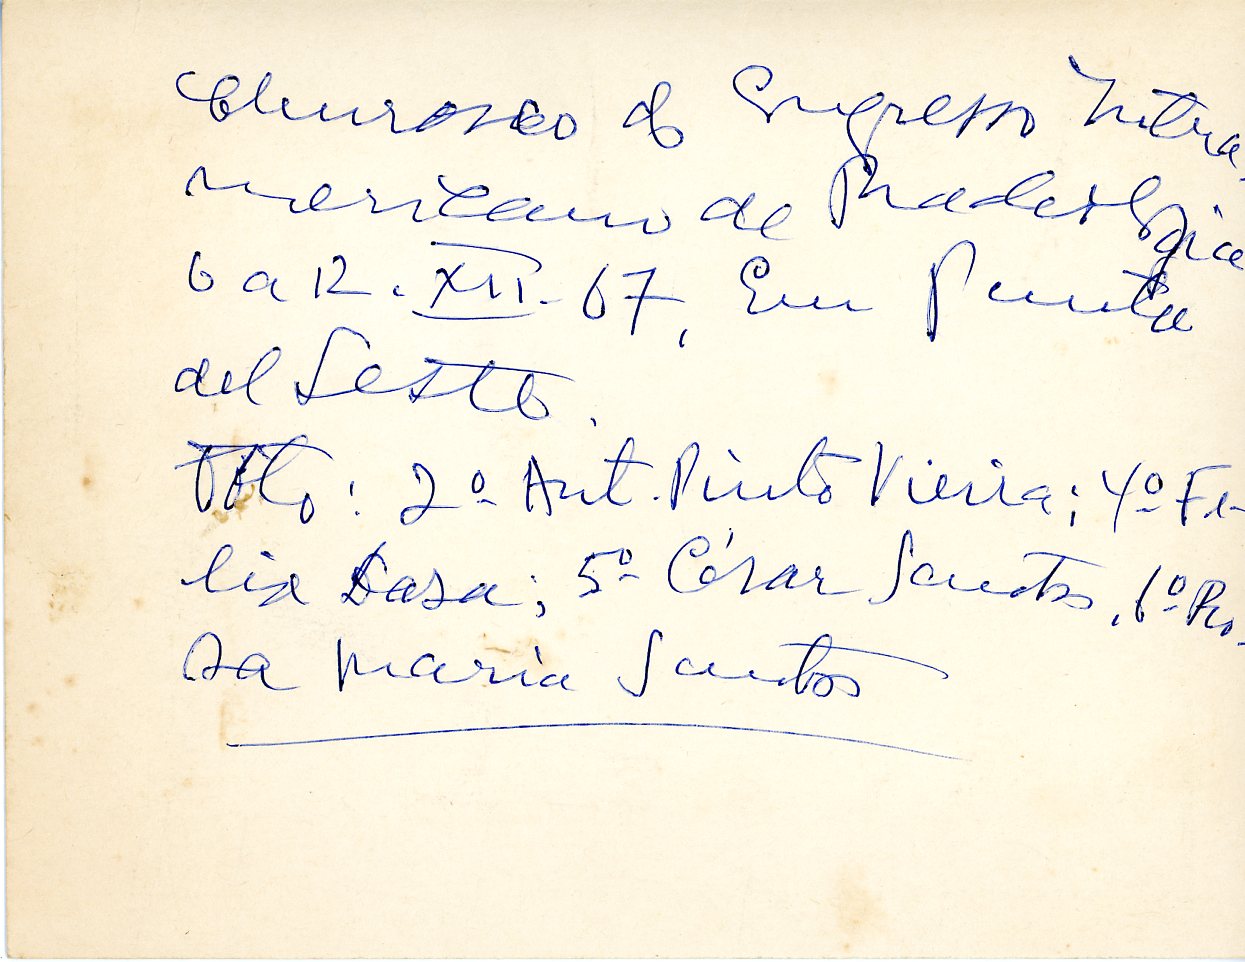 Churasco do Congresso Intera-
mericano de Radiologia
6 a 12.XII.67, Em Punta
del Leste.
: 2º Ant. Pinto Vieira; 4º Fe-
lix Dasa; 5º César Santos, 6º Ro-
sa Maria Santos